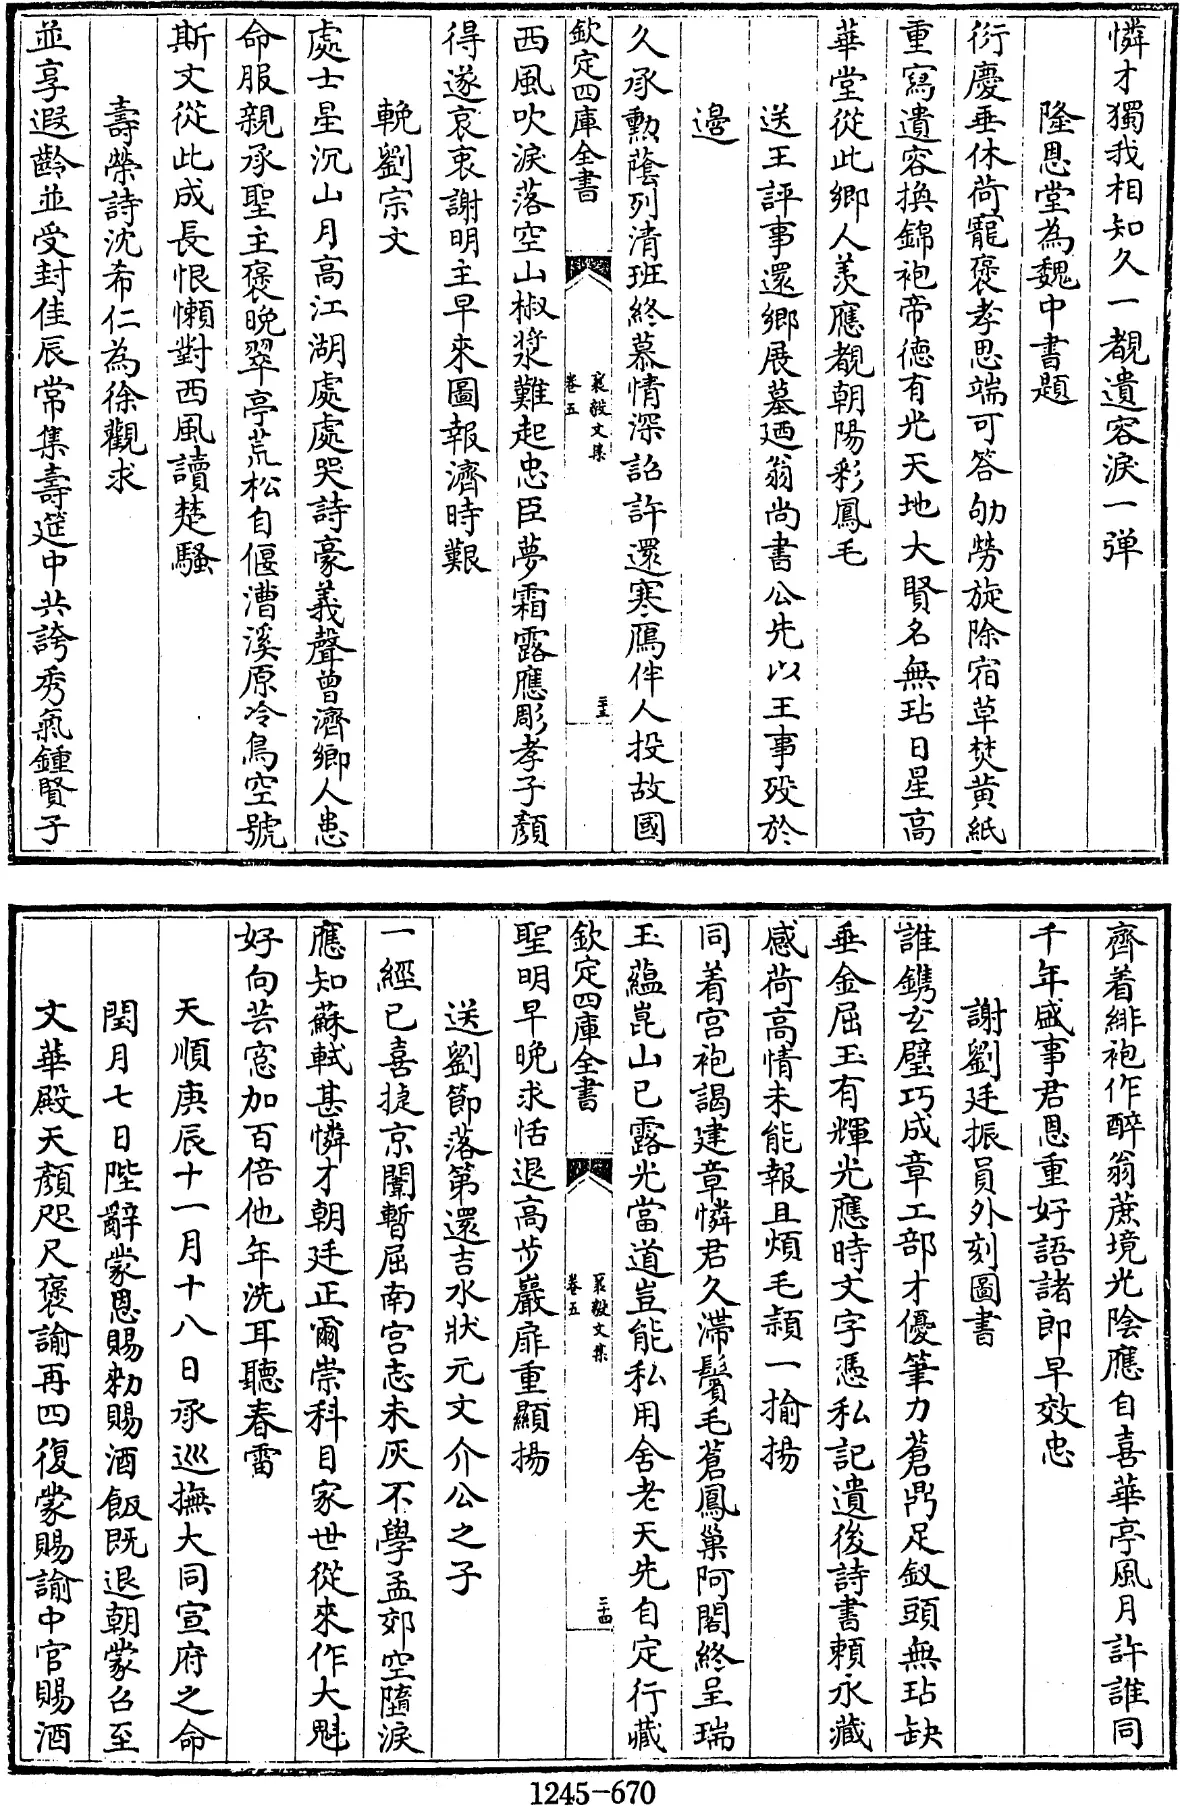 憐才獨我相知久一覩遺容淚一弾
隆恩堂為魏中書題
衍慶垂休荷寵褒孝思端可答劬勞旋除宿草焚黄紙
重寫遺容換錦袍帝徳有光天地大賢名無玷日星高
華堂從此鄉人羨應覩朝陽彩鳳毛
送王評事還鄉展墓廼翁尚書公先以王事殁於
邊
久承勲蔭列清班終慕情深詔許還寒鴈伴人投故國
欽定四庫全書
襄毅文集
卷五
二十三
西風吹淚落空山椒漿難起忠臣夢霜露應彫孝子顔
得遂哀衷謝明主早來圖報濟時艱
輓劉宗文
處士星沉山月高江湖處處哭詩豪義聲曾濟鄉人患
命服親承聖主褒晩翠亭荒松自偃漕溪原冷鳥空號
斯文從此成長恨懶對西風讀楚騷
壽榮詩沈希仁為徐觀求
並享遐齡並受封佳辰常集壽筵中共誇秀氣鍾賢子
齊着緋袍作醉翁蔗境光隂應自喜華亭風月許誰同
千年盛事君恩重好語諸郎早效忠
謝劉廷振員外刻圖書
誰鐫玄璧巧成章工部才優筆力蒼鼎足釵頭無玷缺
垂金屈玉有輝光應時文字憑私記遺後詩書賴永藏
感荷高情未能報且煩毛頴一揄揚
同着宫袍謁建章憐君久滯鬢毛蒼鳳巢阿閣終呈瑞
玉藴崑山已露光當道豈能私用舍老天先自定行藏
欽定四庫全書
襄毅文集
卷五
二十四
聖明早晚求恬退高步巖扉重顯揚
送劉節落第還吉水狀元文介公之子
一經已喜捷京闈暫屈南宫志未灰不學孟郊空墮淚
應知蘇軾甚憐才朝廷正爾崇科目家世從來作大魁
好向芸窓加百倍他年洗耳聽春雷
天順庚辰十一月十八日承巡撫大同宣府之命
閏月七日陛辭蒙恩賜勑賜酒飯既退朝蒙召至
文華殿天顔咫尺褒諭再四復蒙賜諭中官賜酒
1245-670